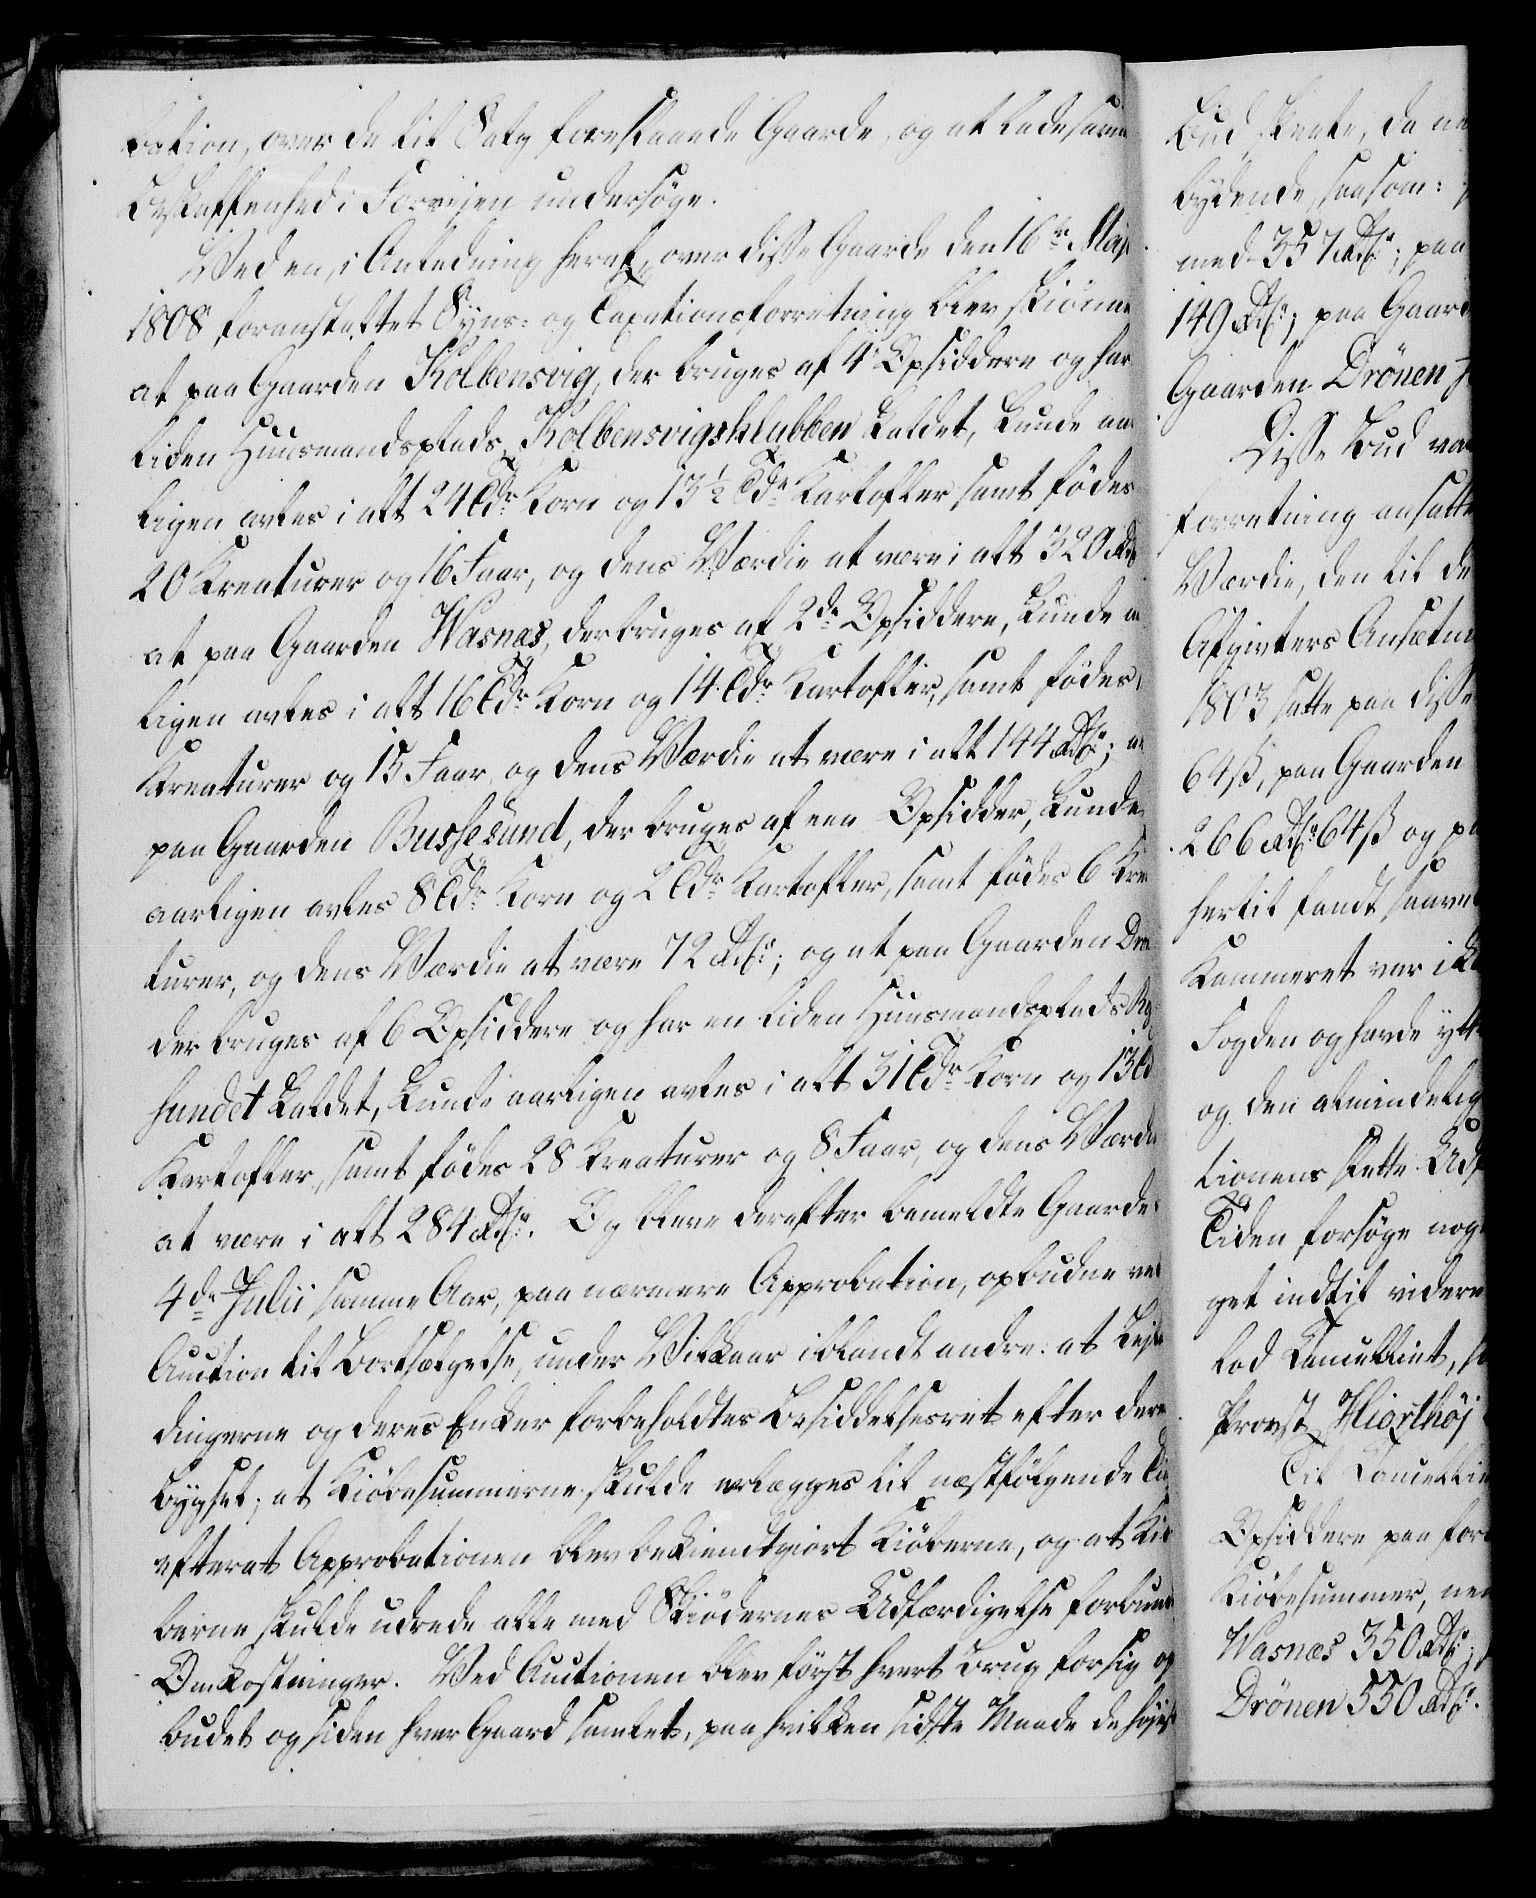 bation, over de til Salg forestaaende Gaarde, og at lade samme
Beskaffenhed i Forvejen undersöge.
Ved en, i Anledning heraf, over disse Gaarde den 16de Maji
1808 foranstaltet Syns- og Taxationsforretning blev skiönnet
at paa Gaarden Kolbensvig, der bruges af 4 Opsiddere og har
liden Huusmandsplads, Kolbensvigsklubben kaldet, kunde aar
ligen avles i alt 24 Tdr Korn og 13½ Tde Kartofler samt födes
20 Kreaturer og 16 Faar, og dens Værdie at være i alt 320 Rdlr
at paa Gaarden Wasnæs, der bruges af 2de Opsiddere, kunde a
ligen avles i alt 16 Tdr Korn og 14 Tdr Kartofler, samt födes
Kreaturer og 15 Faar, og dens Værdie at være i alt 144 Rdlr; a
paa Gaarden Bussesund, der bruges af een Opsidder, kunde
aarligen avles 8 Tdr Korn og 2 Tdr Kartofler, samt födes 6 Krea
turer, og dens Værdie at være 72 Rdlr; og at paa Gaarden Drö
der bruges af 6 Opsiddere og har en liden Huusmandsplads
hundet kaldet, kunde aarligen avles i alt 31 Tdr Korn og 13 Td
Kartofler, samt födes 28 Kreaturer og 8 Faar, og dens Værdie
at være i alt 284 Rdlr. Og bleve derefter bemeldte Gaarde
4de Julii samme Aar, paa nærmere Approbation, opbudne ved
Auction til Bortsælgelse, under Vilkaar iblandt andre: at Leilæn
dingerne og deres Enker forbeholdtes Besiddelsesret efter deres
bygsel; at Kiöbesummerne skulde erlægges til næstfölgende
efterat Approbationen blev bekiendtgiort Kiöberne, og at Kiö
berne skulde udrede alle med Skiödernes Udfærdigelse forbundne
Omkostninger. Ved Auctionen blev först hvert Brug for sig op
budet og siden hver Gaard samlet, paa hvilken sidste Maade de höjest
Bud skeete, da
bydende, saasom:
med 357 Rdlr; paa
149 Rdlr; paa Gaard
Gaarden Drönen
Disse Bud var
forretning ansatte
Værdie, den til de
Afgivters Ansætn
1803 satte paa disse
64 ß, paa Gaarden
266 Rdlr 64 ß og p
hertil fandt saavel
Kammeret var ik
Fogden og havde ytt
og den almindelig
tionens slette Udf
Tiden forsöge nog
get indtil videre
lod Cancelliet,
Provst Hiorthöj
Til Cancellie
Opsiddere paa for
Kiöbesummer, nem
Wasnæs 350 Rdlr;
Drönen 550 Rdlr.